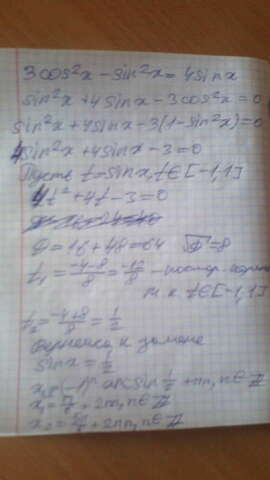 3cos²x - sin²x = 4sinx
sin²x + 4sinx - 3cos²x = 0
sin²x + 4sinx - 3(1-sin²x) = 0
4sin²x + 4sinx - 3 = 0
Пусть t = sinx, t ∈ [-1,1]
4t² + 4t - 3 = 0
D = 16 + 48 = 64 √D = 8
t₁ = (-4-8)/8 = -12/8 - постор.
т.к t ∈ [-1,1]
t₂ = (-4+8)/8 = 1/2
Вернемся к замене
sinx = 1/2
x = (-1)ⁿ arcsin 1/2 + πn, n ∈ Z
x₁ = π/6 + 2πn, n ∈ Z
x₂ = 5π/6 + 2πn, n ∈ Z